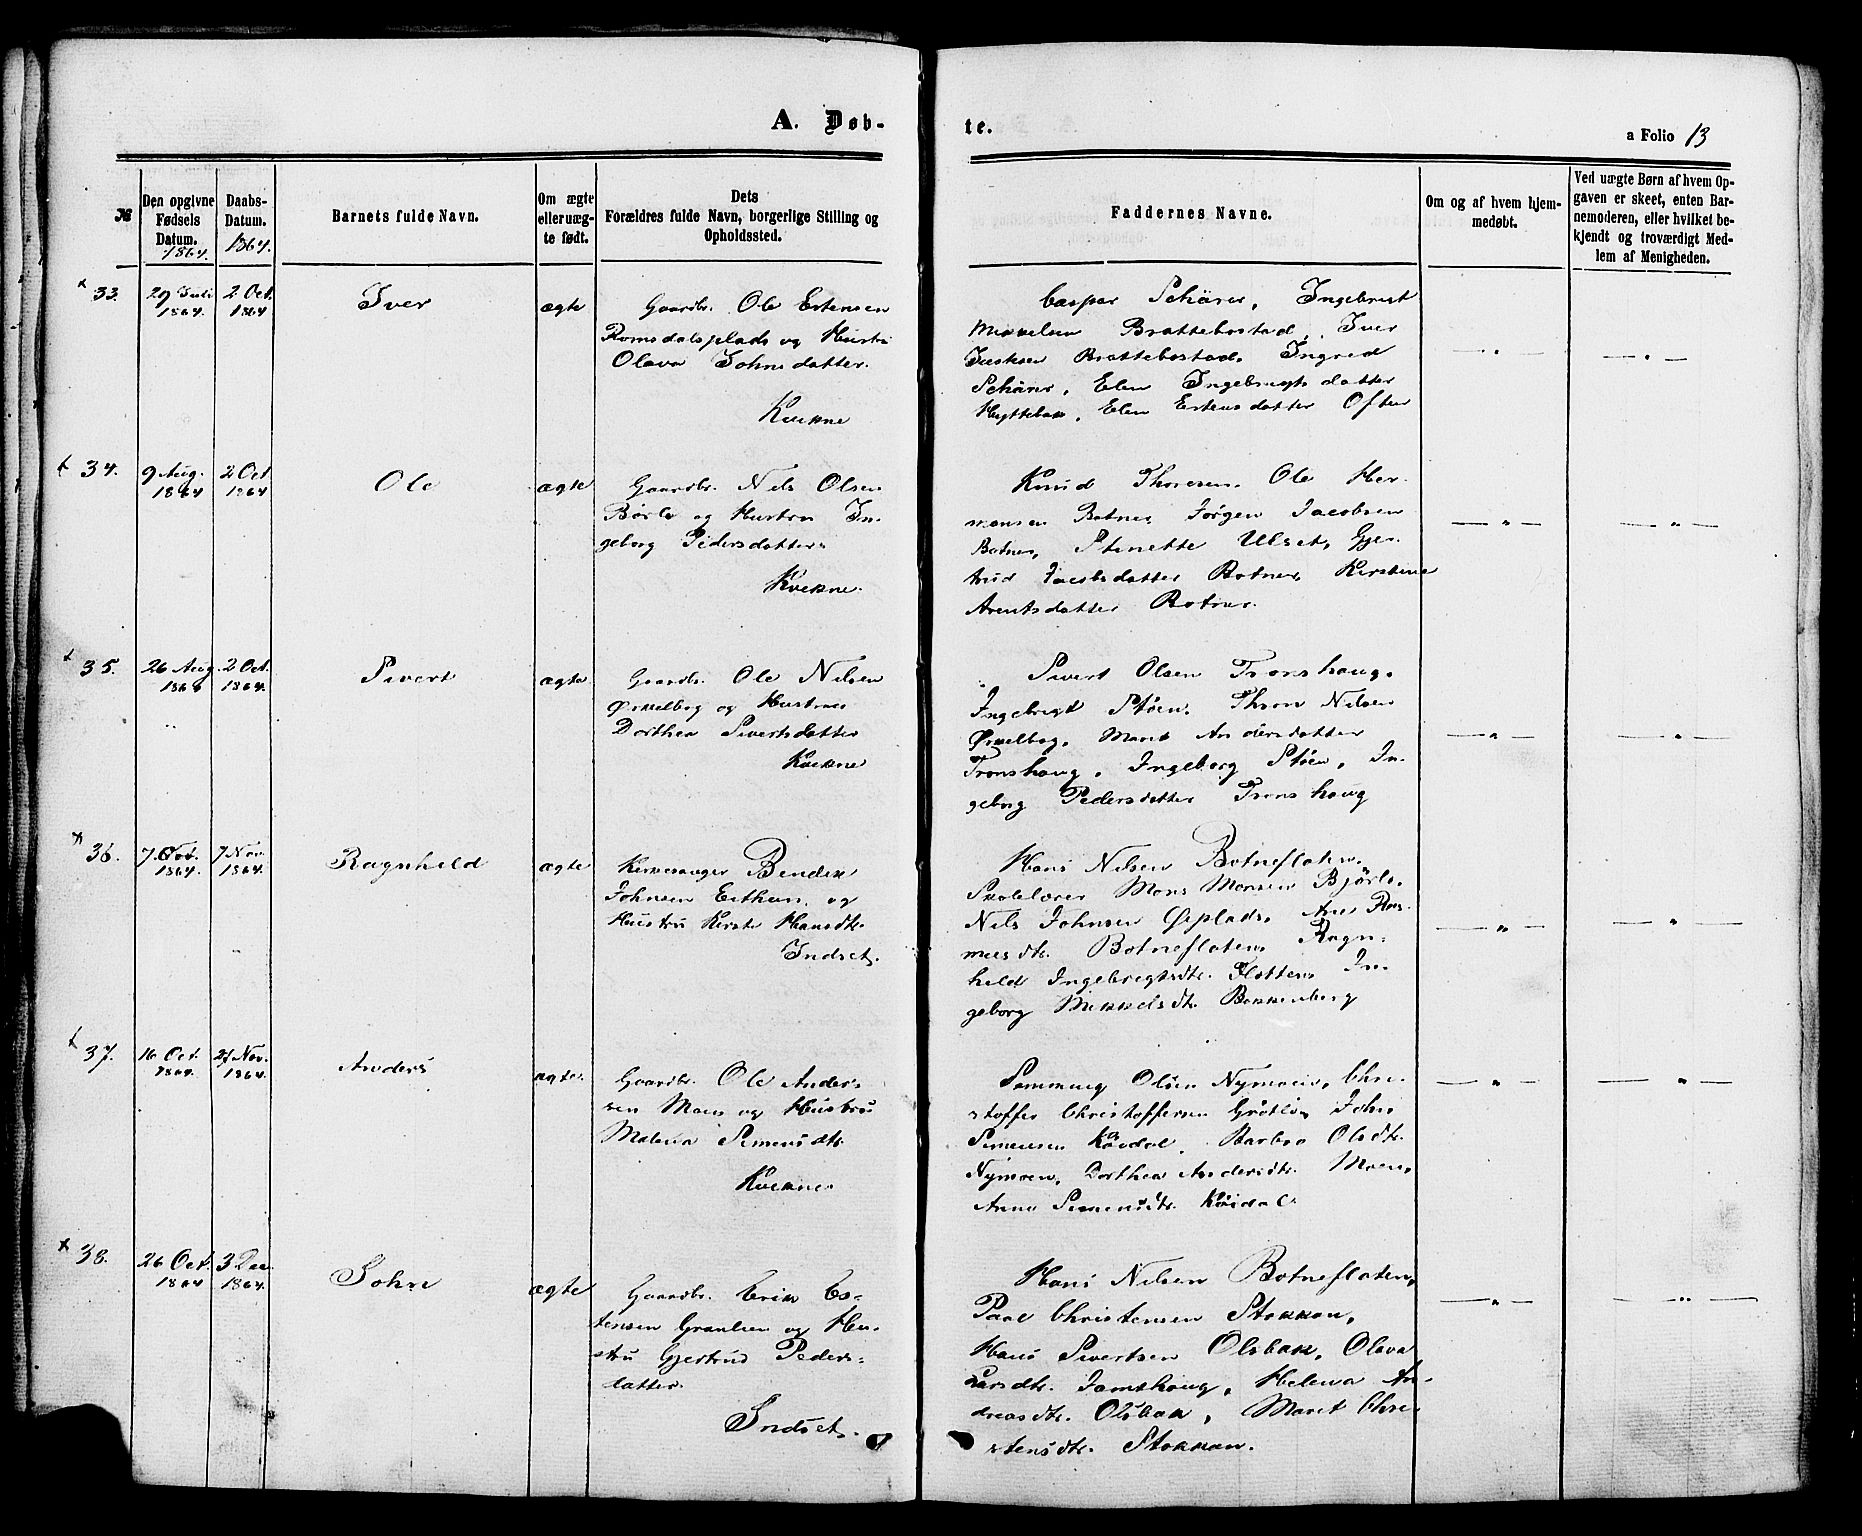 A. Døb-
te.
a Folio 13
№
Den opgivne
Fødsels
Datum.
1864.
Daabs-
Datum.
1864.
Barnets fulde Navn.
Om ægte
eller uæg-
te født.
Dets
Forældres fulde Navn, borgerlige Stilling og
Opholdssted.
Faddernes Navne.
Om og af hvem hjem-
medøbt.
Ved uægte Børn af hvem Op-
gaven er skeet, enten Bar-
nemoderen, eller hvilket be-
kjendt og troværdigt Med-
lem af Menigheden.
33.
29 Juli
1864.
2 Oct.
1864
Iver
ægte
Gaardbr. Ole Estensen
Romsdalsplads og Hustru
Olava Johnsdatter.
Kvikne
Caspar Schärer, Ingebrigt
Brattebostad, Iver
Brattebostad, Ingred
Schärer, Elen Ingebrigtsdatter
Hyttebak, Elen Estensdatter Often
34.
9 Aug.
1864
2 Oct
1864
Ole
ægte
Gaardbr. Nils Olsen
Børli og Hustru In-
geborg Pedersdatter.
Kvikne.
Knud Thoresen, Ole Her-
mansen Botner, Jørgen Jacobsen
Botner, Stinette Ulset, Gjer-
trud Jacobsdatter Botner, Kirstine
Arentsdatter Botner.
35.
26 Aug.
1864
2 Oct.
1864.
Sivert
ægte
Gaardbr. Ole Nilsen
Ørkelbog og Hustrue
Dorthea Sivertsdatter
Kvikne
Sivert Olsen Tronshaug,
Ingebrigt Støen, Thron Nilsen
Ørkelbog, Marit Andersdatter
Tronshaug, Ingeborg Støen, In-
geborg Pedersdatter Tronshaug
36.
7. Oct.
1864.
7 Nov.
1864.
Ragnhild
ægte
Kirkesanger Bendik
Johnsen Esthun, og
Hustru Kirsti Hansdtr.
Indset.
Hans Nilsen Botnefloten,
Skolelærer Mons Monsen Bjørli,
Nils Johnsen Øiplads, Ane Ras-
musdtr. Botnefloten, Ragn-
hild Ingebrigtsdtr. Flotten, In-
geborg Mikkelsdtr. Bakkenberg
37.
16 Oct.
1864.
27 Nov.
1864.
Anders
ægte.
Gaardbr. Ole Ander-
sen Moen og Hustru
Malena Simensdtr.
Kvikne.
Samming Olsen Nymoen, Chri-
stoffer Christoffersen Grøtli, John
Simensen Kåsdal, Barbro Olsdtr.
Nymoen, Dorthea Andersdtr. Moen,
Anne Simensdtr. Kåsdal.
38.
26 Oct.
1864
3 Dec.
1864.
John
ægte
Gaardbr. Erik Es-
tensen Graulien og Hu-
stru Gjertrud Peders-
datter.
Indset.
Hans Nilsen Botnefloten,
Paal Christensen Stokkan,
Hans Sivertsen Olsbak, Olava
Larsdtr. Jamthaug, Helena An-
dreasdtr. Olsbak, Marit Chri-
stensdtr. Stokkan.